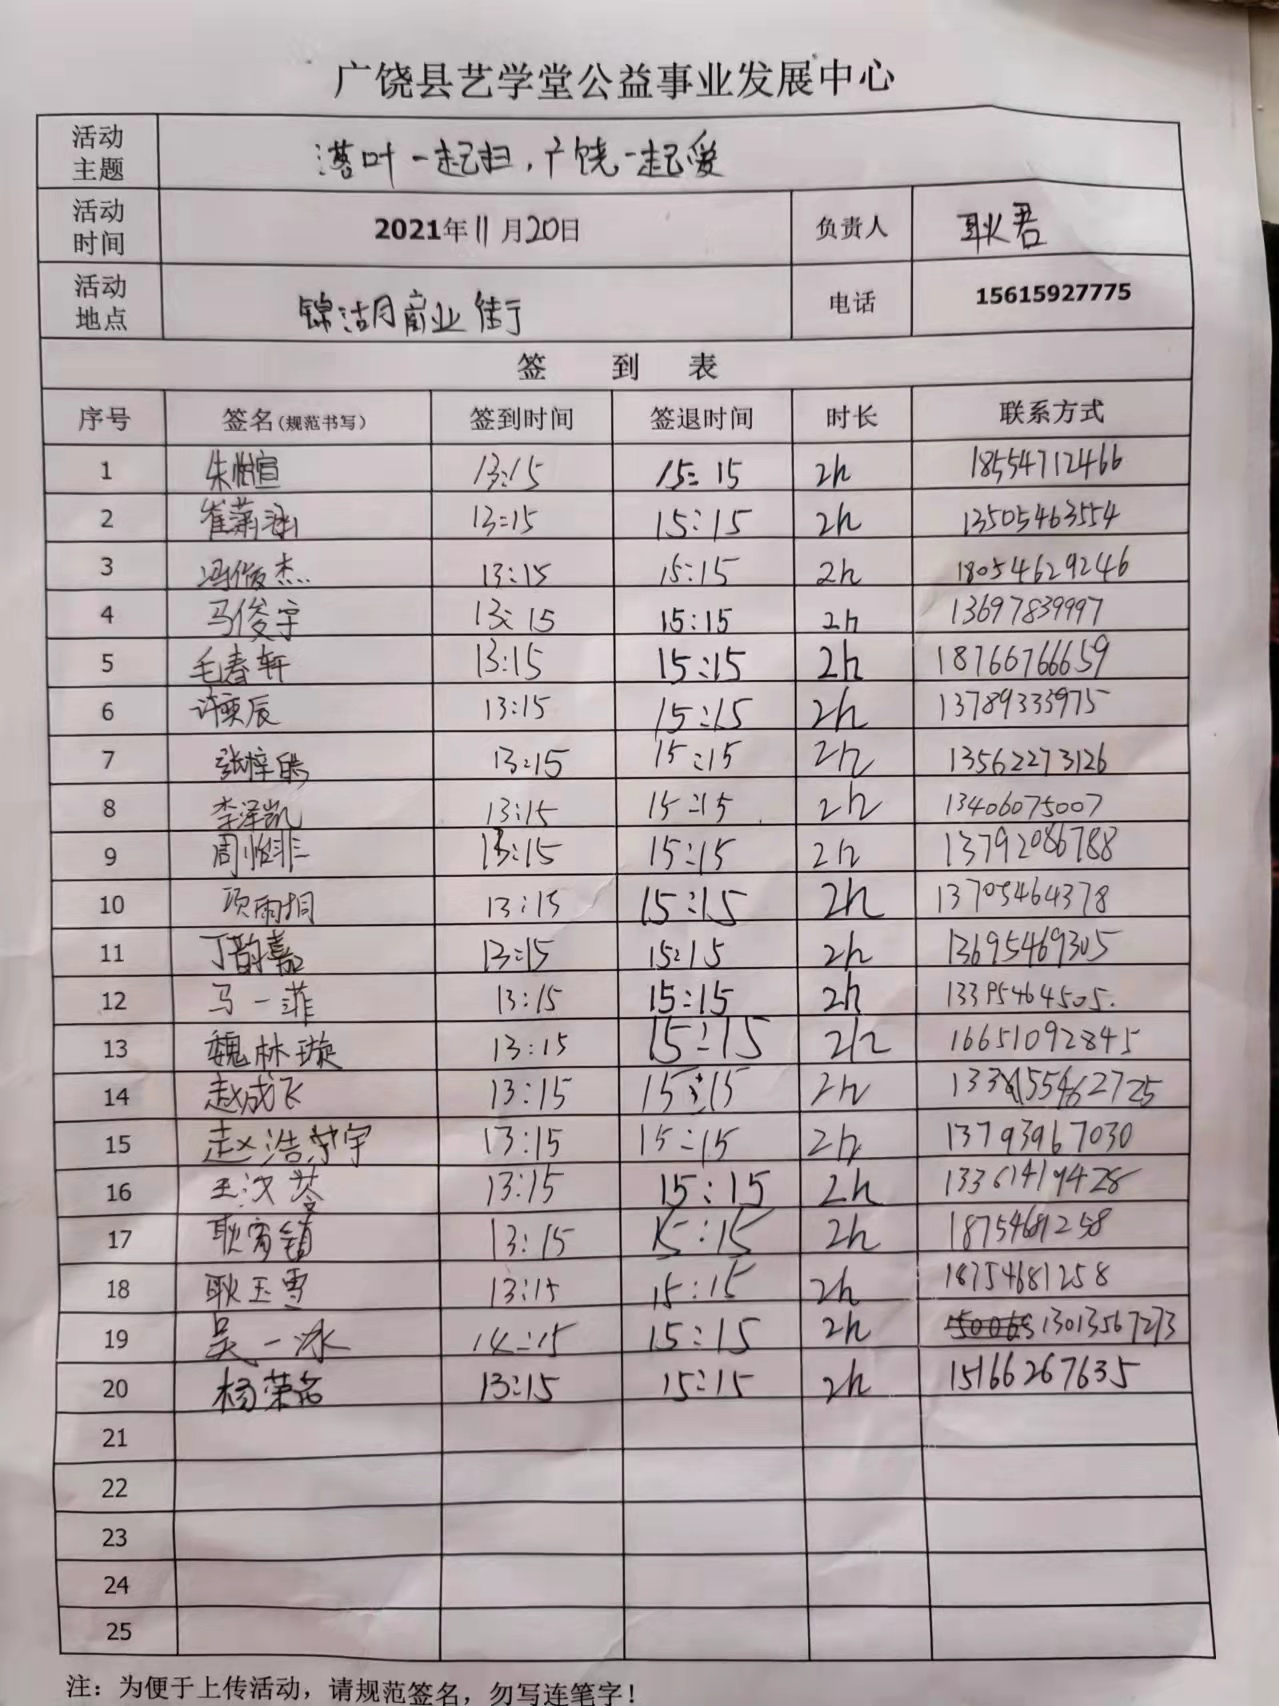 广饶县艺学堂公益事业发展中心
活动主题 落叶一起扫,广饶一起爱
活动时间 2021年11月20日 负责人 耿君
活动地点 锦湖月商业街 电话 15615927775
签 到 表
序号 签名(规范书写) 签到时间 签退时间 时长 联系方式
1 朱悦宣 13:15 15:15 2h 18554712466
2 崔潇涵 13:15 15:15 2h 13505463554
3 冯俊杰 13:15 15:15 2h 18054629246
4 马俊宇 13:15 15:15 2h 13697839997
5 毛春轩 13:15 15:15 2h 18766766659
6 许奕辰 13:15 15:15 2h 13789333975
7 张梓皓 13:15 15:15 2h 13562273126
8 李泽凯 13:15 15:15 2h 13406075007
9 周悦非 13:15 15:15 2h 13792086788
10 项雨桐 13:15 15:15 2h 13705464378
11 丁韵嘉 13:15 15:15 2h 13695469305
12 马一菲 13:15 15:15 2h 13395464505.
13 魏林璇 13:15 15:15 2h 16651092845
14 赵成飞 13:15 15:15 2h
15 赵浩宇 13:15 15:15 2h 13793967030
16 王汶苓 13:15 15:15 2h 13361419428
17 耿 13:15 15:15 2h 18754681258
18 耿玉雪 13:15 15:15 2h 18754681258
19 吴一冰 14:15 15:15 2h 13013567273
20 杨荣茗 13:15 15:15 2h 15166267635
21
22
23
24
25
注:为便于上传活动,请规范签名,勿写连笔字!